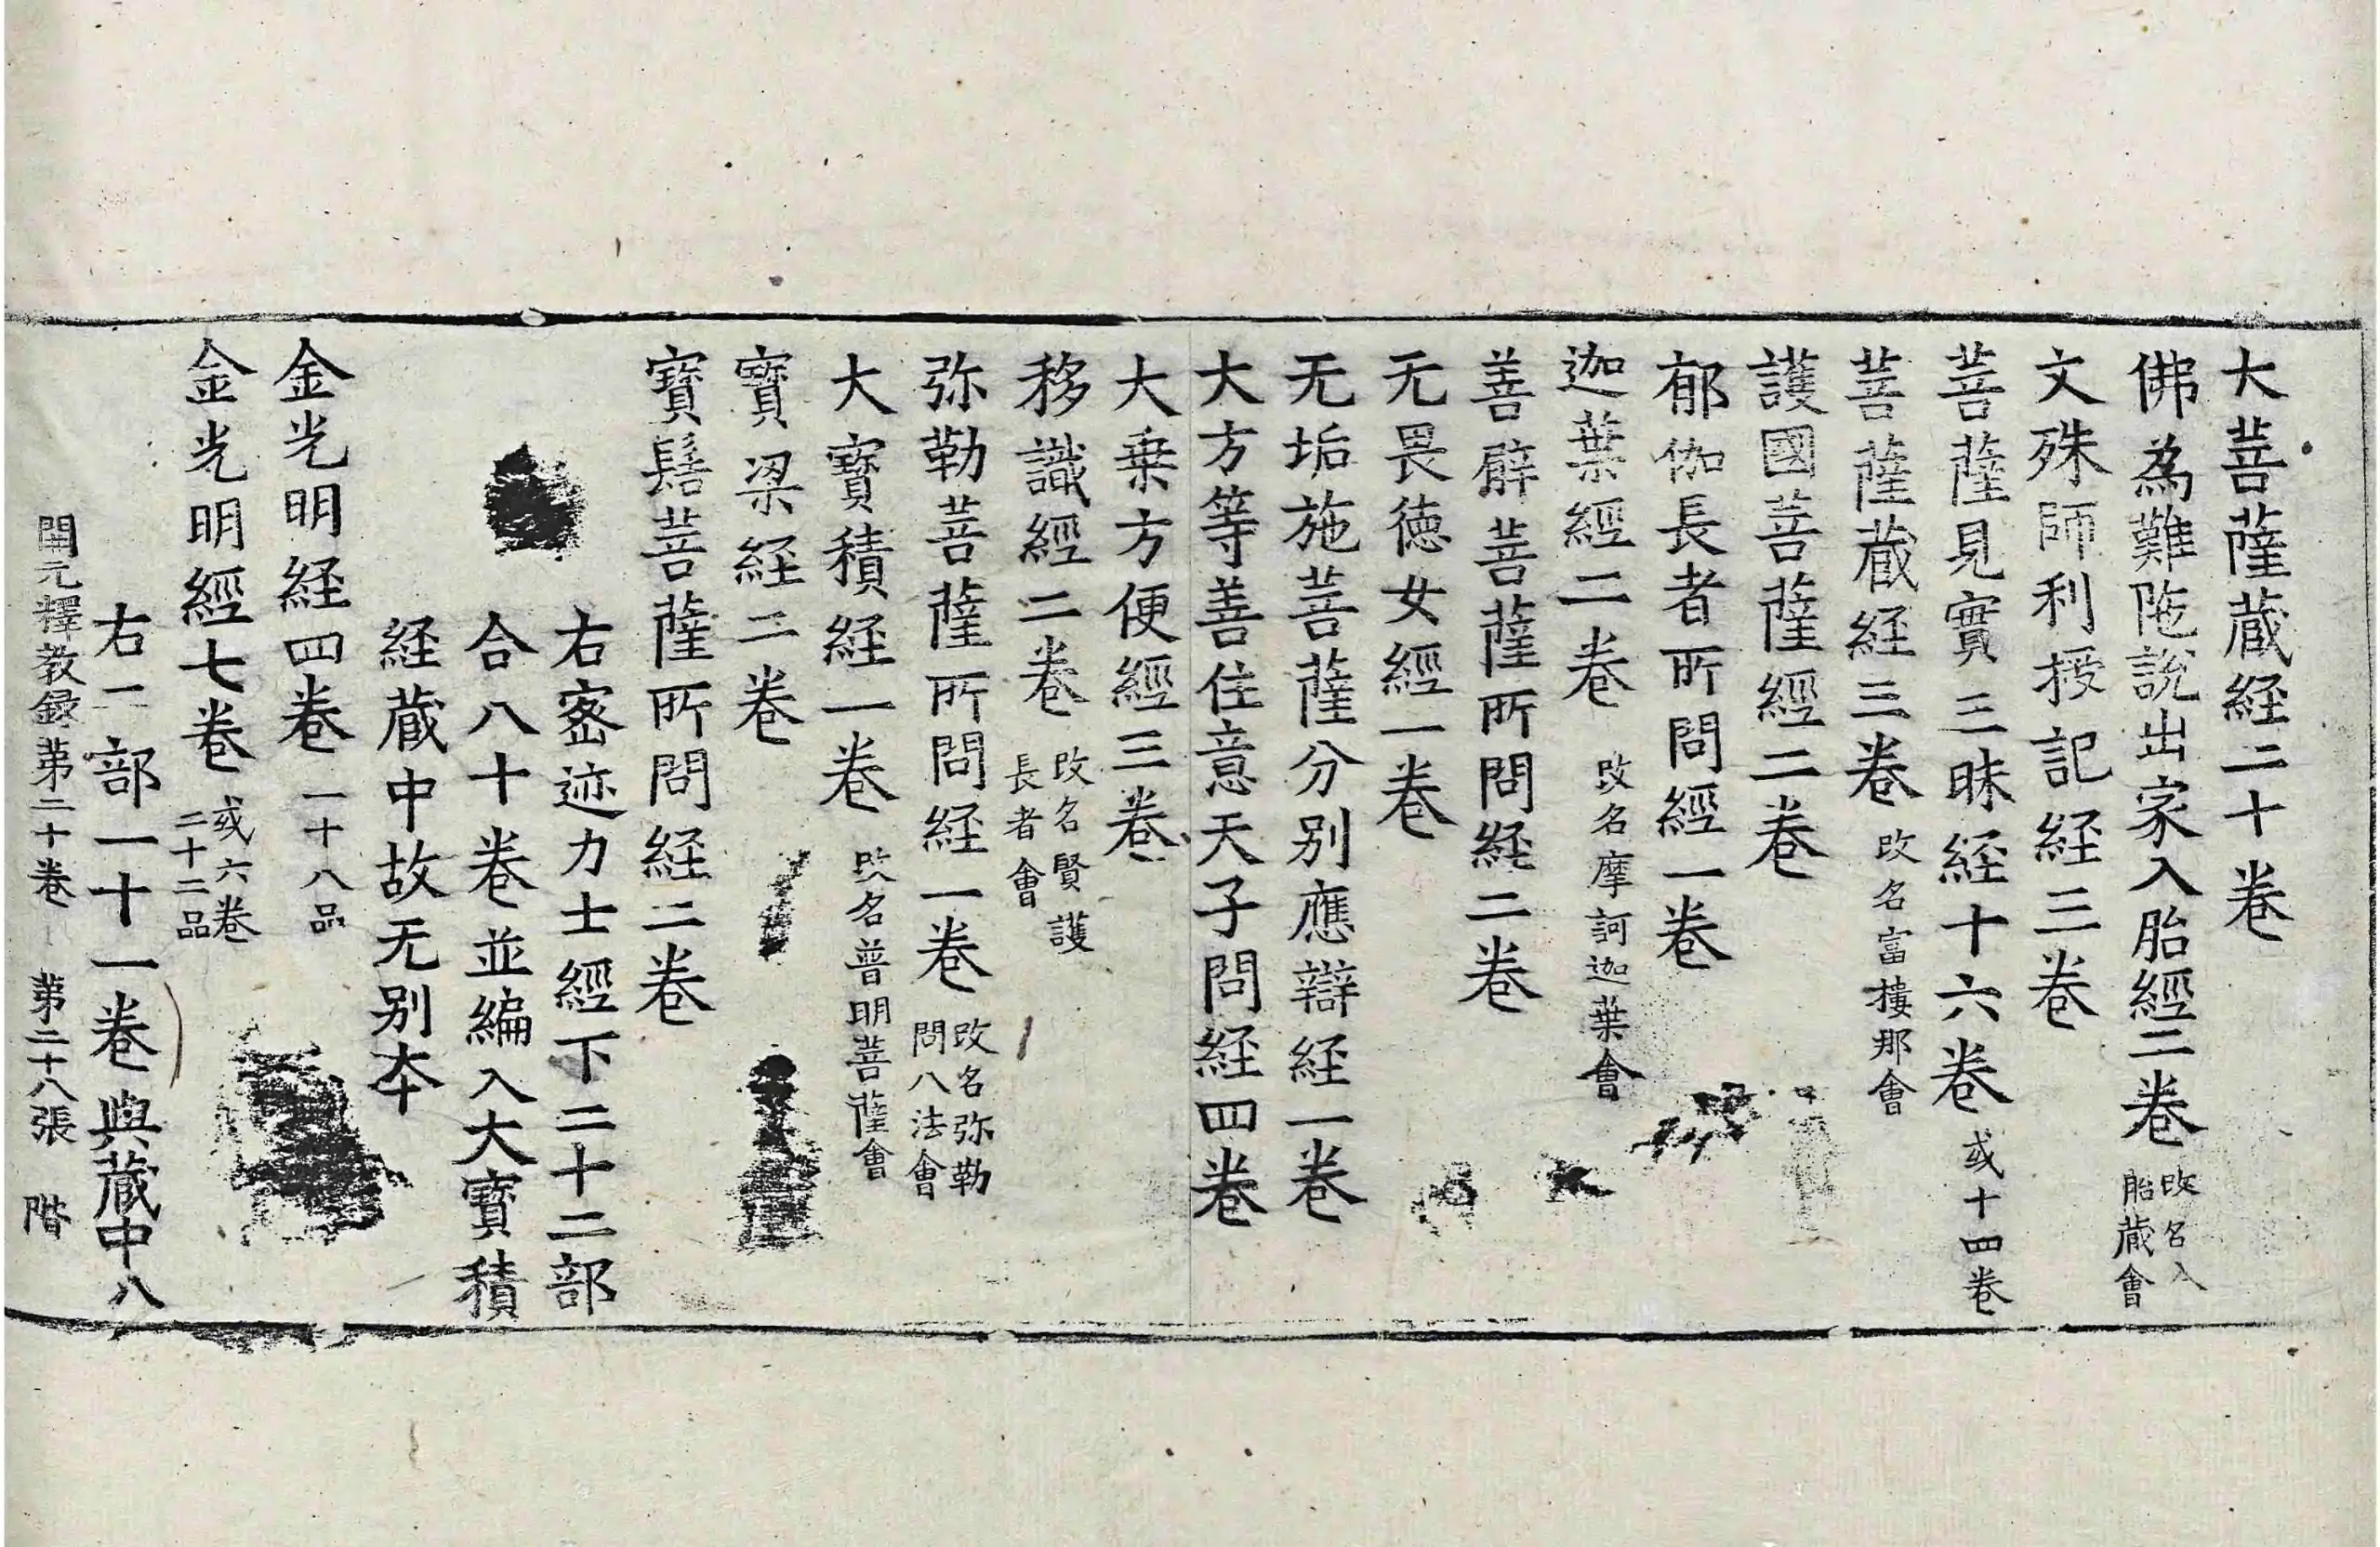 大菩薩蔵経二十卷
佛為難陁說出家入胎經二卷 改名入胎蔵會
文殊師利授記経三卷
菩薩見實三昧経十六卷 或十四卷
菩薩蔵経三卷 改名富樓那會
護國菩薩經二卷
郁伽長者所問經一卷
迦葉經二卷 改名摩訶迦葉會
善臂菩薩所問経二卷
无畏德女經一卷
无垢施菩薩分别應辯経一卷
大方等善住意天子問経四卷
大乗方便經三卷
移識經二卷 改名賢護長者會
弥勒菩薩所問経一卷 改名弥勒問八法會
大寶積経一卷 改名普明菩薩會
寶梁経二卷
寶髻菩薩所問経二卷
右密迹力士經下二十二部
合八十卷並編入大寶積
経蔵中故无别夲
金光明経四卷 一十八品
金光明經七卷 或六卷二十二品
右二部一十一卷與蔵中八
開元釋教録第二十卷 第二十八張 階